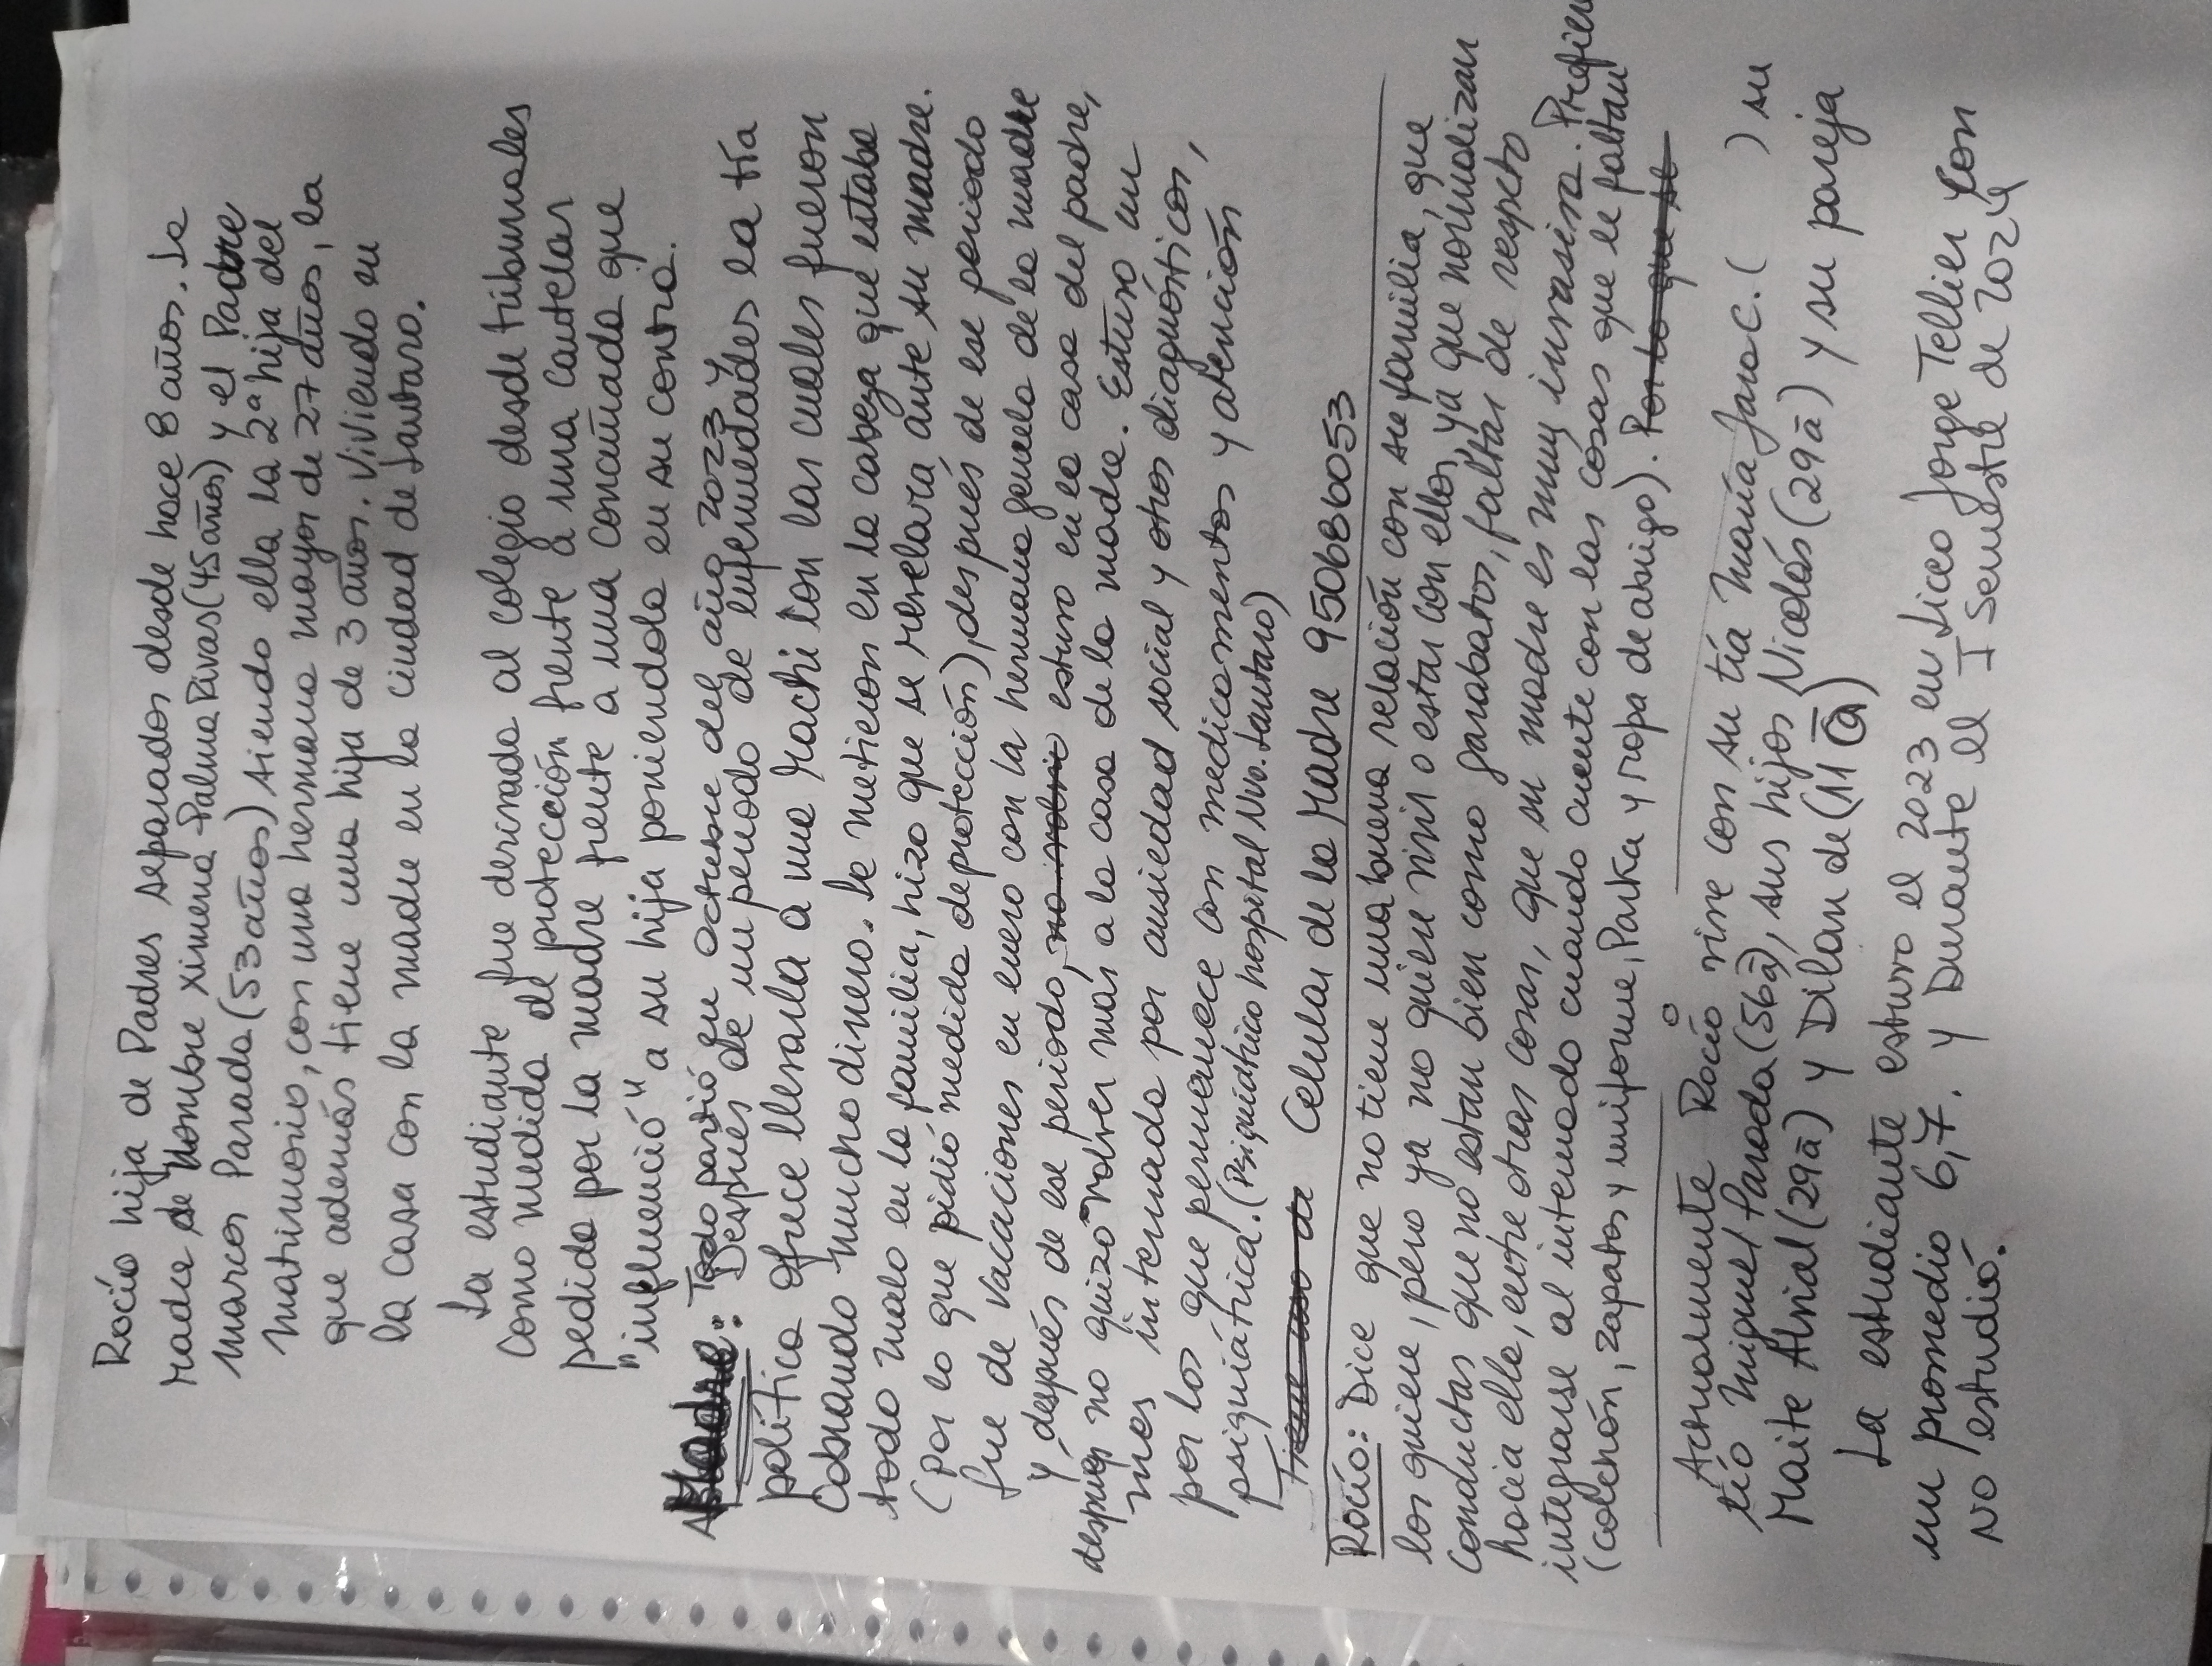 Rocío hija de Padres separados desde hace 8 años. La
Madre de Nombre Ximena Palma Rivas (45 años) y el Padre
Marcos Parada (53 años) siendo ella la 2ª hija del
matrimonio, con una hermana mayor de 27 años, la
que además tiene una hija de 3 años. Viviendo en
la casa con la madre en la ciudad de Lautaro.
La estudiante fue derivada al colegio desde tribunales
como medida de protección frente a una cautelar
pedida por la madre frente a una concuñada que
"influenció" a su hija poniendola en su contra.
Madre: Todo partió en octubre del año 2023 y
Después de un periodo de enfermedades la tía
política ofrece llevarla a una Machi con las cuales fueron
Cobrando mucho dinero. Le metieron en la cabeza que estaba
todo malo en la familia, hizo que se revelara ante su madre.
(por lo que pidió medida de protección), después de ese periodo
fue de vacaciones en enero con la hermana gemela de la madre
y después de ese periodo, no volvió estuvo en la casa del padre,
después no quizo volver más a la casa de la madre. Estuvo un
mes internada por ansiedad social y otros diagnósticos,
por los que permanece con medicamentos y atención
psiquiátrica. (Psiquiátrico hospital Nvo. Lautaro)
Celular de la Madre 950686053
Rocío: Dice que no tiene una buena relación con su familia, que
los quiere, pero ya no quiere vivir o estar con ellos, ya que normalizan
conductas que no estan bien como garabatos, faltas de respeto
hacia ella, entre otras cosas, que su madre es muy invasiva. Prefiere
integrarse al internado cuando cuente con las cosas que le faltan
(colchón, zapatos y uniforme, Parka y ropa de abrigo). Por lo que se
Actualmente Rocío vive con su tía María Jara C. ( ) su
tío Miguel Parada (56a), sus hijos Nicolás (29a) y su pareja
Maite Abrial (29a) y Dilan de (11 a)
La estudiante estuvo el 2023 en Liceo Jorge Tellier con
un promedio 6,7. y Durante el I Semestre de 2024
NO estudió.